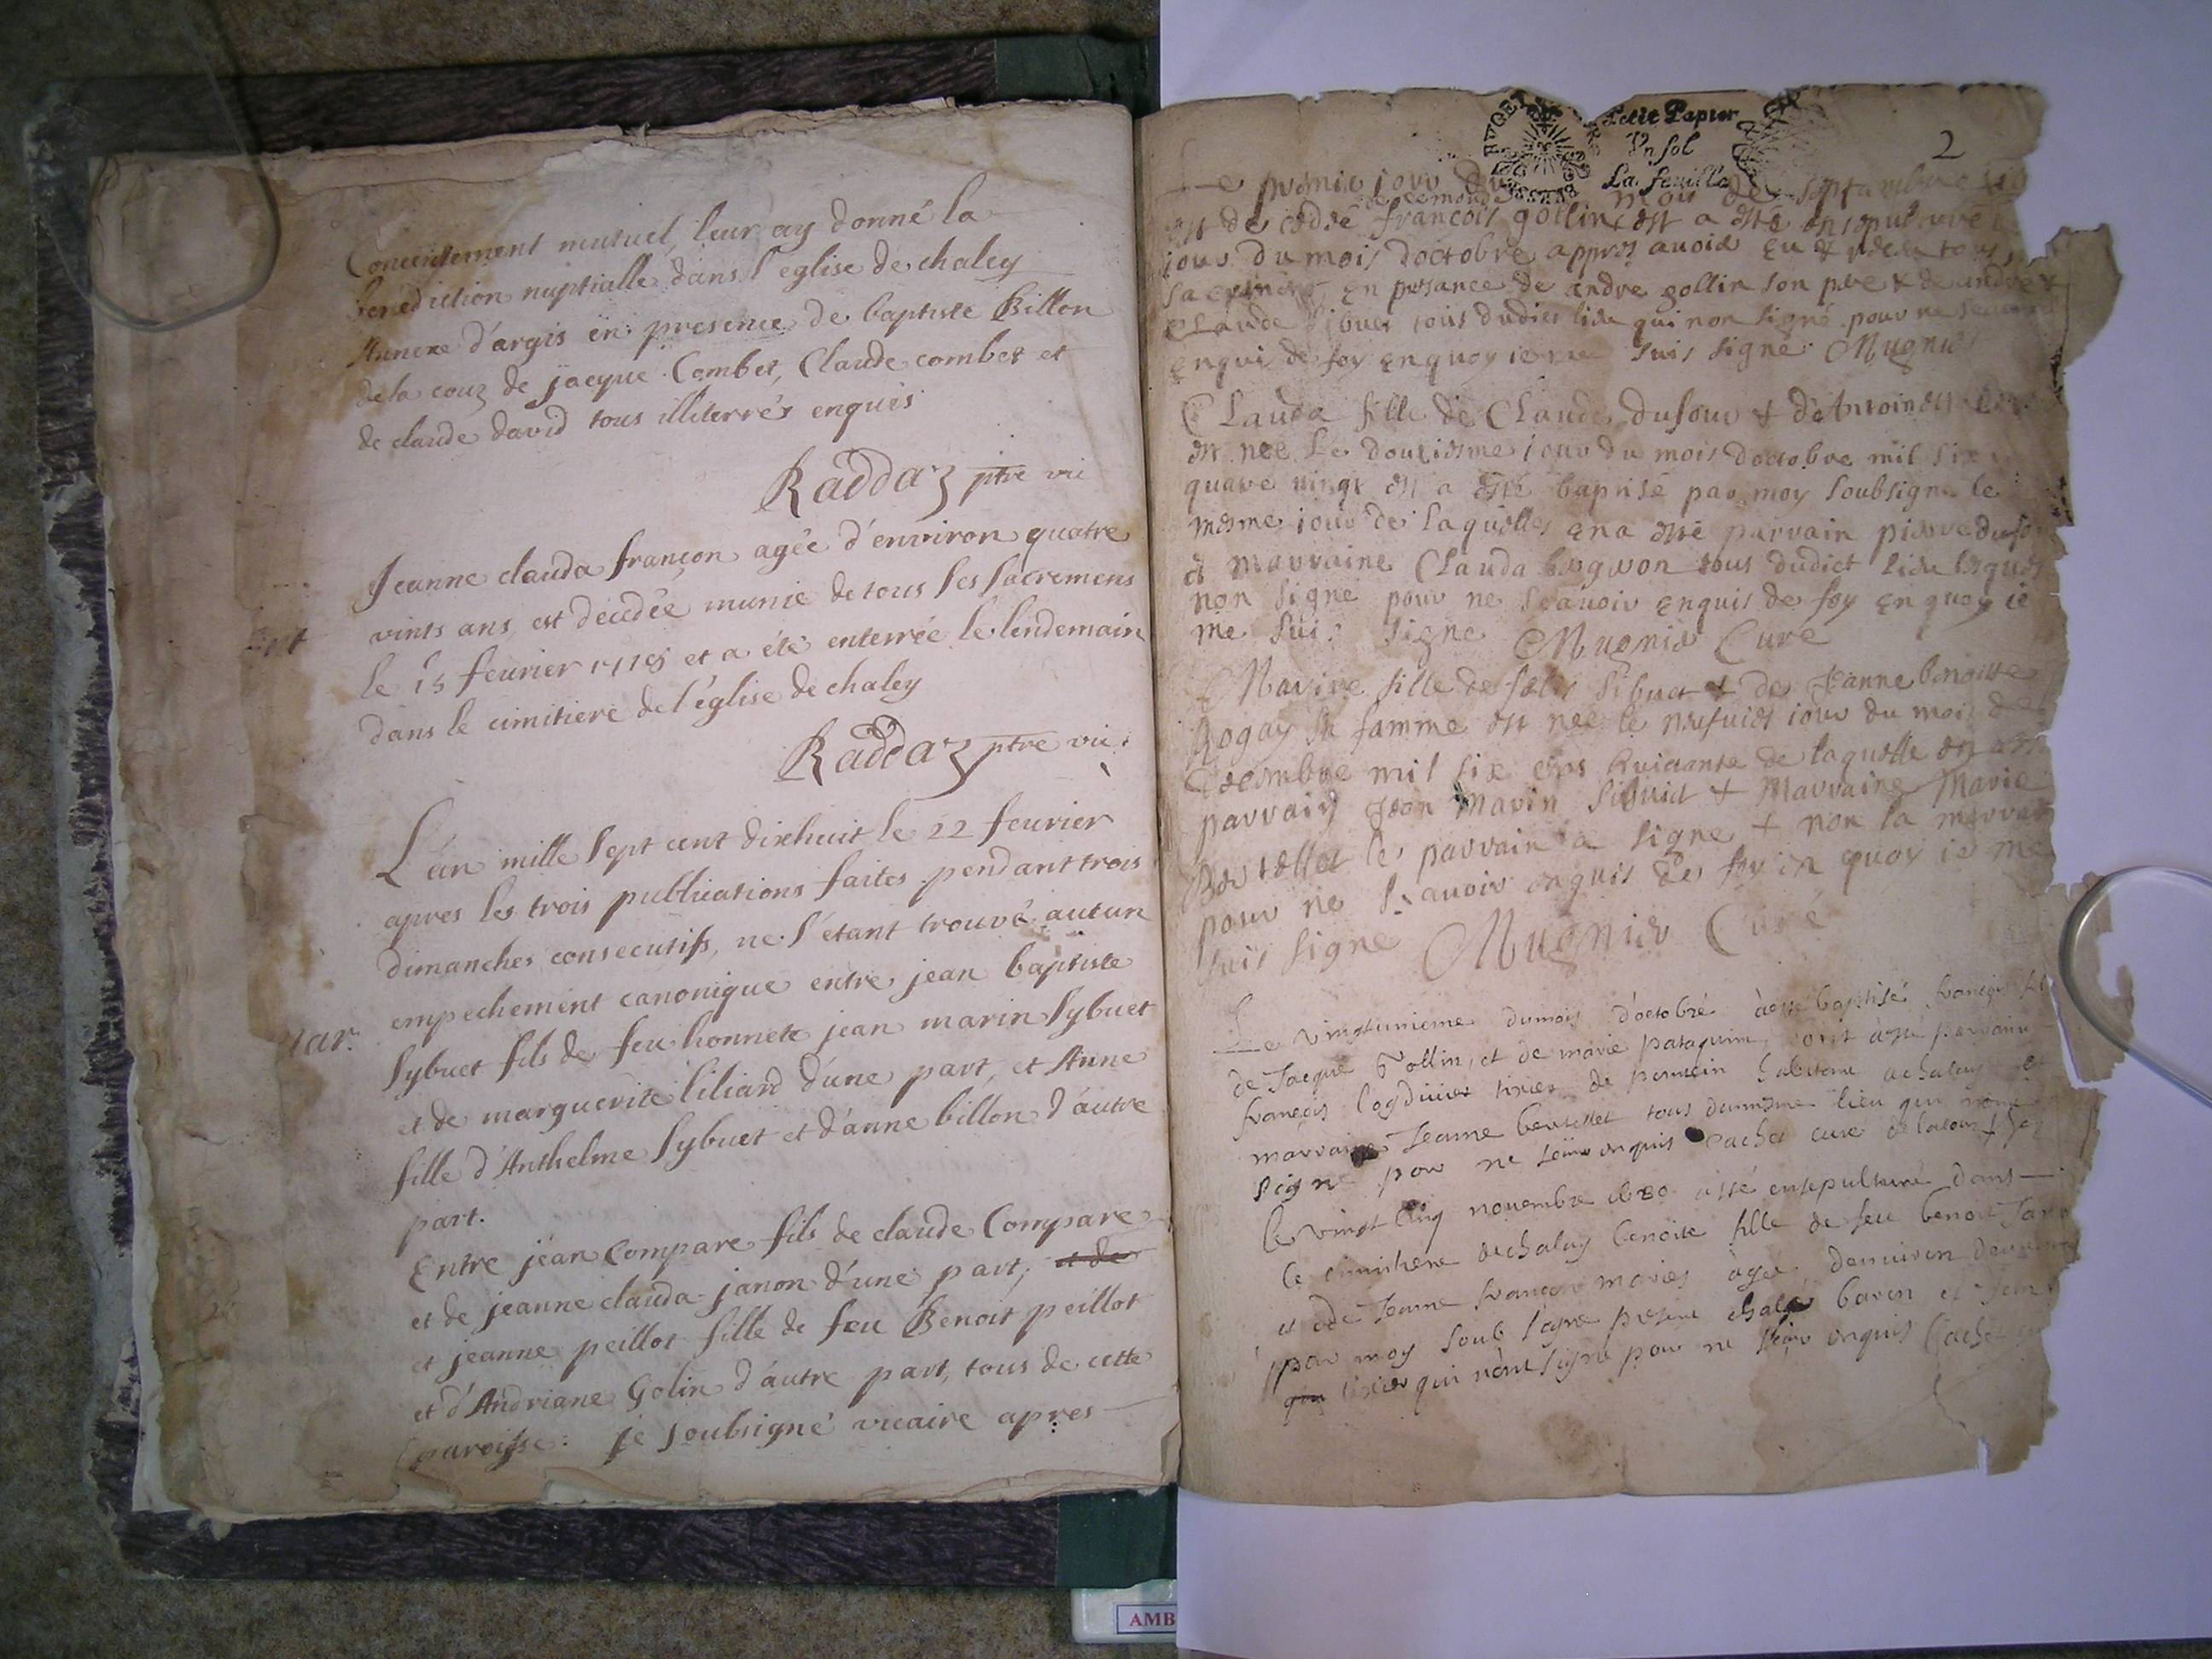 Concentement mutuel, leur ay donné la
benediction nuptialle dans l'eglise de chaley
Annexe d'argis en presence de baptiste Billon
de la couz de jacque Combet, Claude combet et
de claude david tous illiterrés enquis
Raddaz ptre vic
Jeanne clauda françon agée d'environ quatre
vints ans est decedée munie de tous ses sacremens
le 15 feurier 1718 et a été enterrée le lendemain
dans le cimitiere de l'église de chaley
Raddaz ptre vic.
L'an mille sept cent dixhuit le 22 feurier
apres les trois publications faites pendant trois
dimanches consecutifs, ne s'étant trouvé aucun
mar. empechement canonique entre jean baptiste
Sybuet fils de feu honnete jean marin Sybuet
et de marguerite liliard d'une part, et Anne
fille d'Anthelme Sybuet et d'anne billon d'autre
part.
Entre jean Compare fils de claude Compare
et de jeanne clauda janon d'une part, et de
et jeanne peillot fille de feu Benoit peillot
et d'Andriane Golin d'autre part, tous de cette
paroisse. je soubsigné vicaire apres
Petit Papier
Vn sol
La feuille
2
Le premie jour du mois de septambre
de ce monde
est de cédé francois gollin est a esté ensepulturé
iour du mois doctobre appres avoir eu
en presance de andre gollin son pere & de andre &
Claude Sibuet tous dudict lieu qui non signé pour ne
enqui de foy en quoy ie me suis signé Mugnier
Clauda fille de Claude dufour & de Antoinette
est nee le douziesme iour du mois doctobre mil six
quatre vingt est a esté baptisé par moy soubsigne le
mesme iour de laquelle en a esté parrain pierre dufour
et marraine Clauda bergeron tous dudict lieu lesquels
non signe pour ne scavoir enquis de foy en quoy ie
me suis signe Mugnier Curé
Marine fille de Sibuet & de Jeanne benoitte
Rogay sa famme est nee le iour du mois de
decembre mil six cens huictante de laquelle en a esté
parrain Jean Marin Sibuet & Marraine Marie
Bertellet le parrain a signe & non la marraine
pour ne scavoir enquis de foy en quoy ie me
suis signe Mugnier Curé
Le vingtunieme du mois d'octobre a esté baptisé françois fils
de Jacque Gollin, et de marie pataquin, ont esté parrain
françois tixier de habitant a chaley et
marraine Jeanne bertellet tous du mesme lieu qui nont
signe pour ne scavoir enquis Cachet curé
Le vingt cinq novembre 1680 a esté ensepulturé dans
le cimithiere de chaley benoite fille de feu benoit
et de Jeanne françon mariés agée denuiron
par moy soub signe present bavin et
qui tixier qui nont signé pour ne scavoir enquis Cachet
AMB